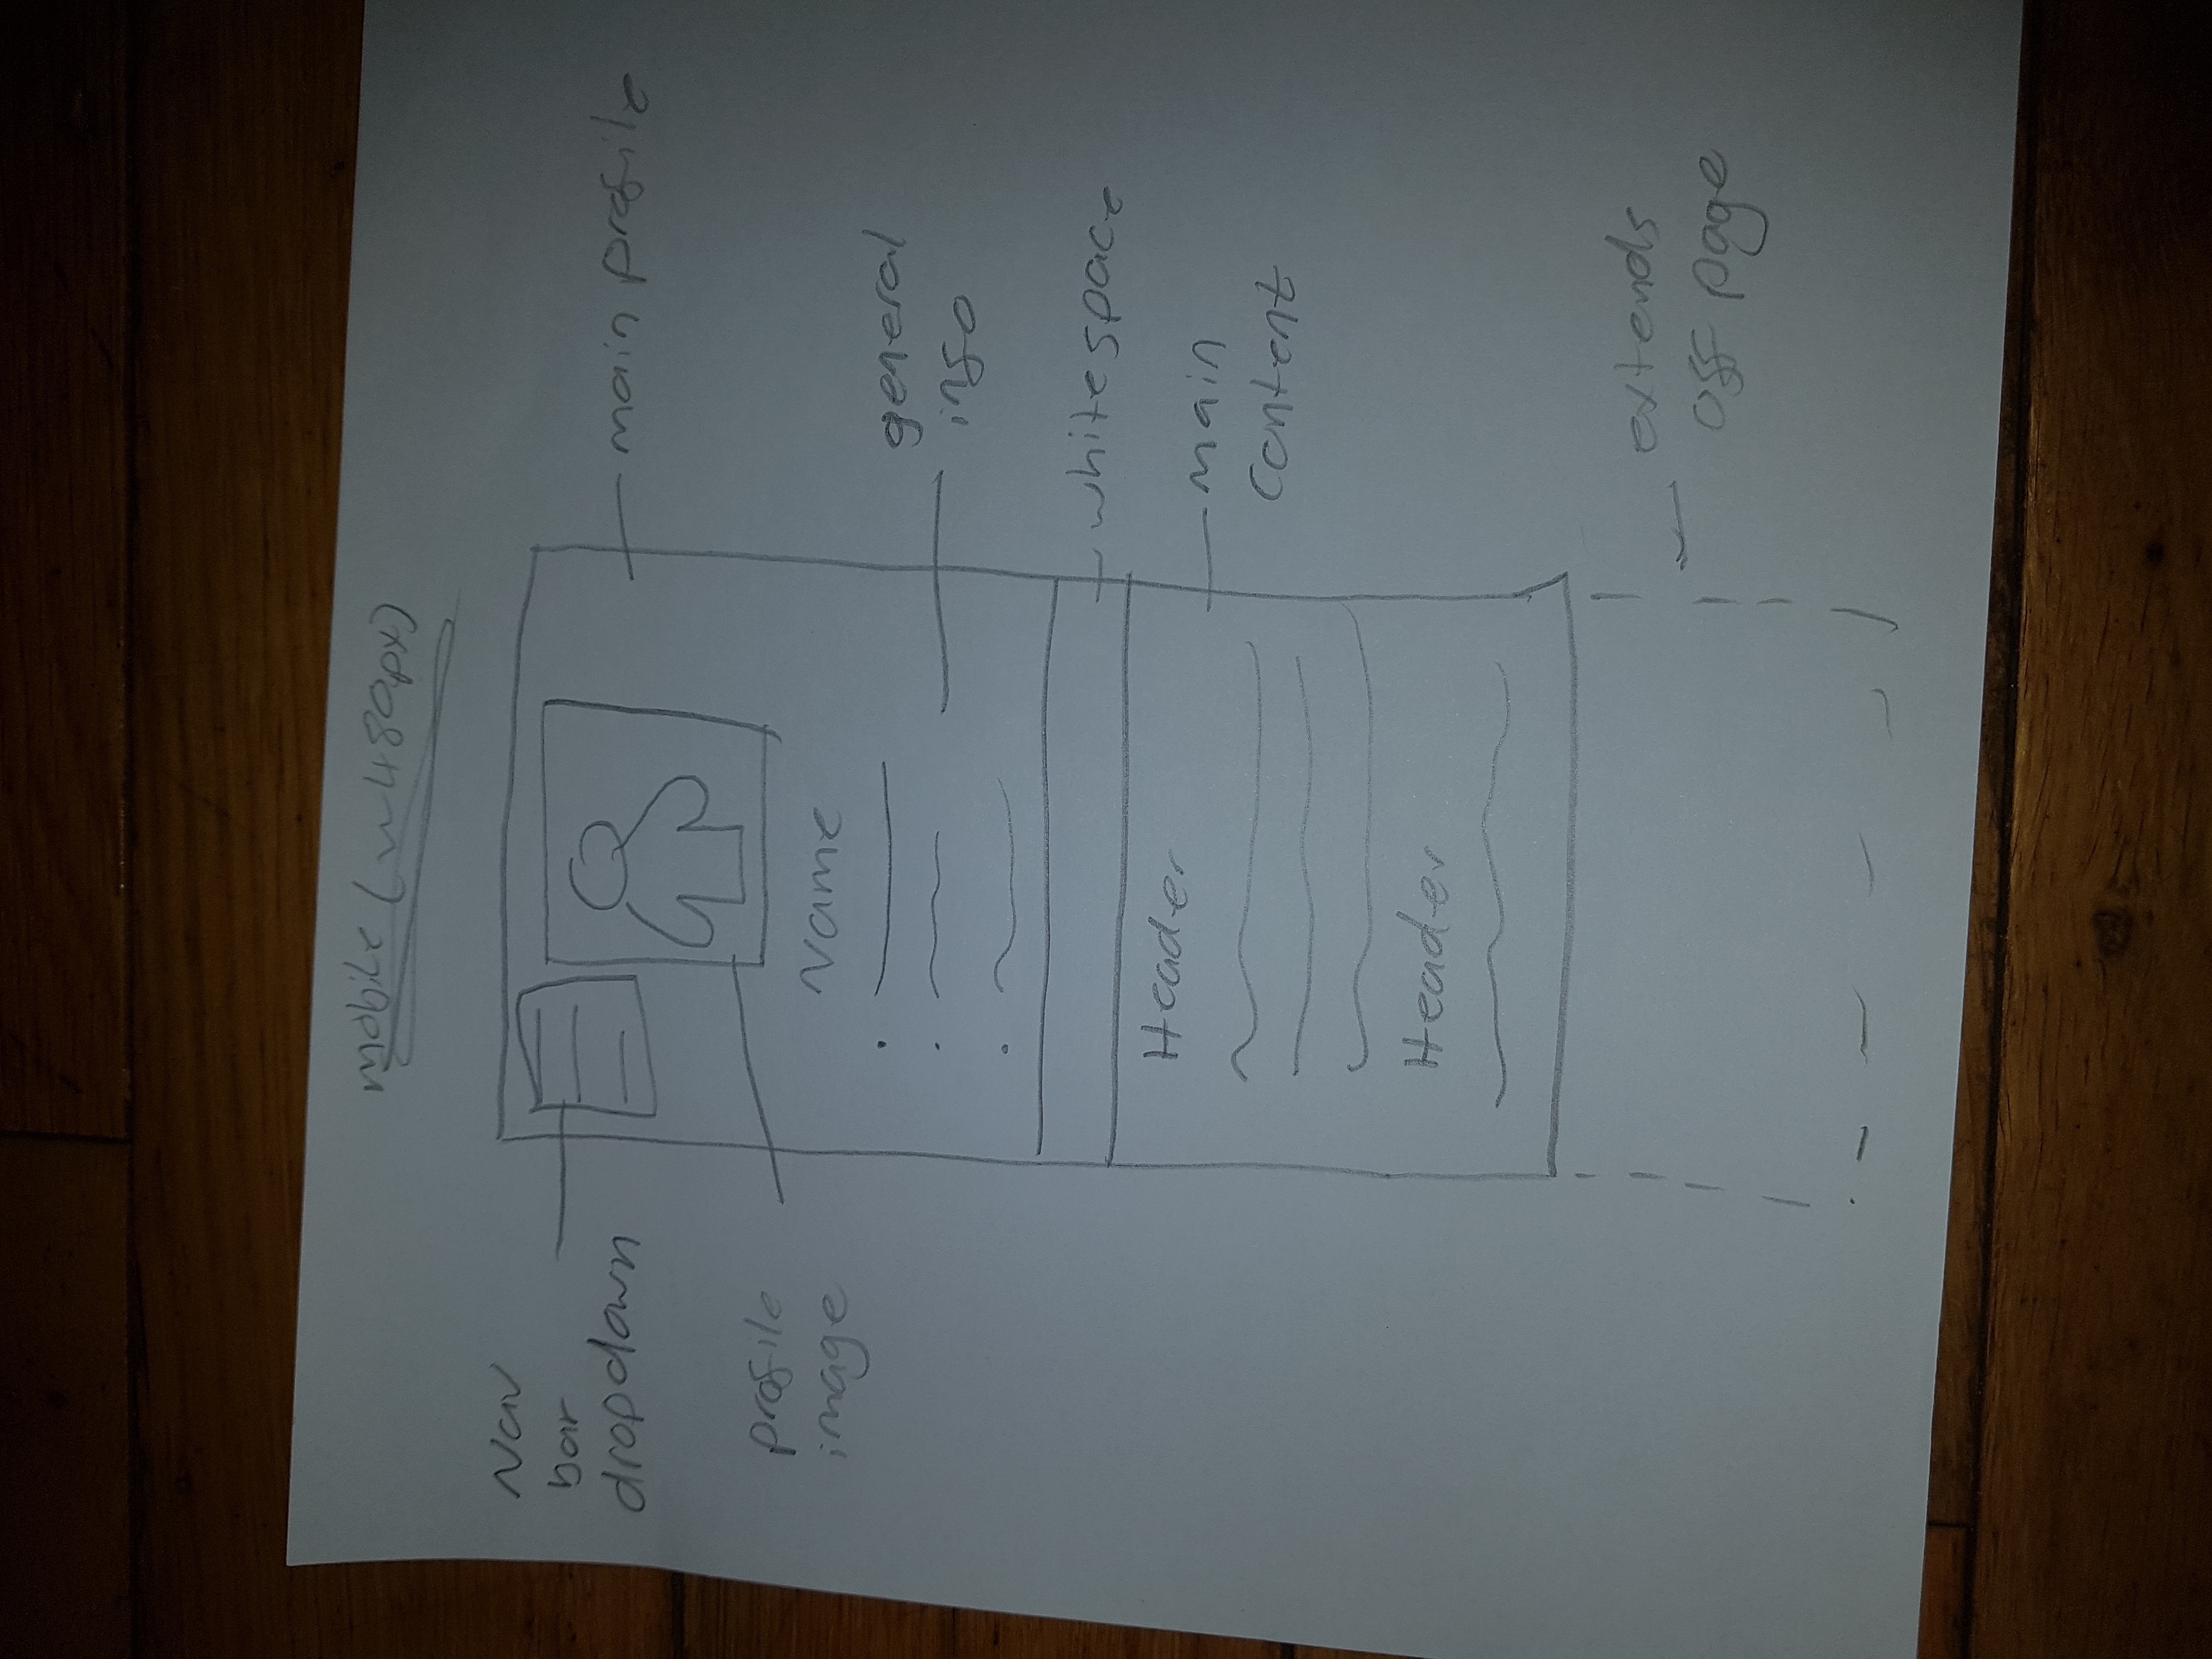 mobile (~480px)
Nav
bar
dropdown
main profile
profile
image
Name
general
info
whitespace
Header
main
content
Header
extends
off page